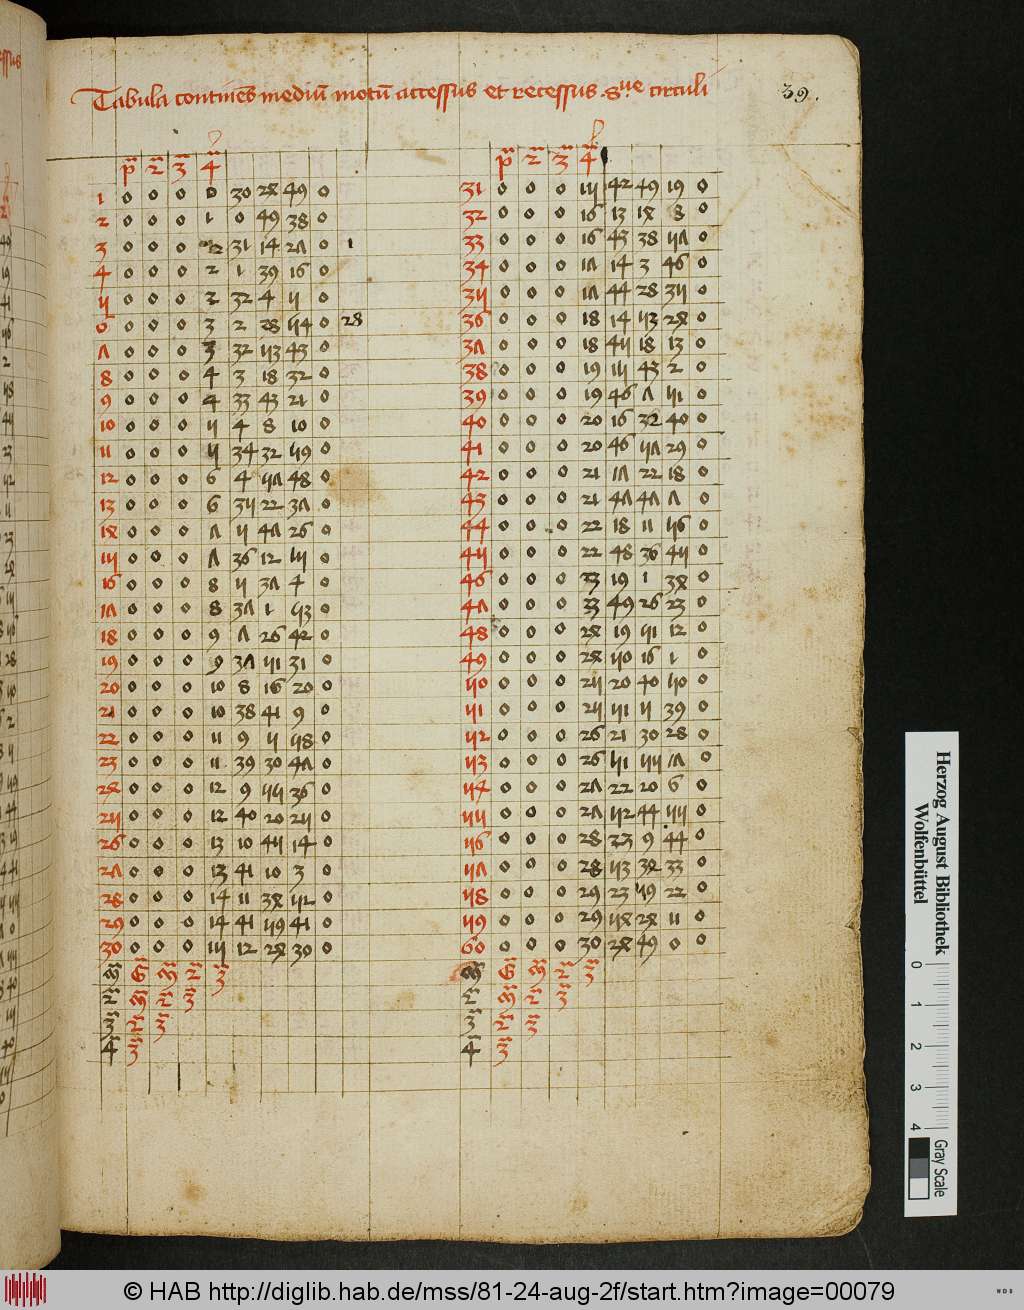 Tabula continens mediũ motũ accessus et recessus 8ue circuli
39.
p̃ 2̃ 3̃ 4̃ p̃ 2̃ 3̃ 4̃
1 0 0 0 0 30 24 49 0 31 0 0 0 15 42 49 19 0
2 0 0 0 1 0 49 38 0 32 0 0 0 16 13 14 8 0
3 0 0 0 2 31 14 27 0 1 33 0 0 0 16 43 38 57 0
4 0 0 0 2 1 39 16 0 34 0 0 0 17 14 3 46 0
5 0 0 0 2 32 4 5 0 35 0 0 0 17 44 28 35 0
6 0 0 0 3 2 28 54 0 28 36 0 0 0 18 14 53 24 0
7 0 0 0 3 32 53 43 0 37 0 0 0 18 45 18 13 0
8 0 0 0 4 3 18 32 0 38 0 0 0 19 15 43 2 0
9 0 0 0 4 33 43 21 0 39 0 0 0 19 46 7 51 0
10 0 0 0 5 4 8 10 0 40 0 0 0 20 16 32 40 0
11 0 0 0 5 34 32 59 0 41 0 0 0 20 46 57 29 0
12 0 0 0 6 4 57 48 0 42 0 0 0 21 17 22 18 0
13 0 0 0 6 35 22 37 0 43 0 0 0 21 47 47 7 0
14 0 0 0 7 5 47 26 0 44 0 0 0 22 18 11 56 0
15 0 0 0 7 36 12 15 0 45 0 0 0 22 48 36 45 0
16 0 0 0 8 5 37 4 0 46 0 0 0 23 19 1 34 0
17 0 0 0 8 37 1 53 0 47 0 0 0 23 49 26 23 0
18 0 0 0 9 7 26 42 0 48 0 0 0 24 19 51 12 0
19 0 0 0 9 37 51 31 0 49 0 0 0 24 50 16 1 0
20 0 0 0 10 8 16 20 0 50 0 0 0 25 20 40 50 0
21 0 0 0 10 38 41 9 0 51 0 0 0 25 51 5 39 0
22 0 0 0 11 9 5 58 0 52 0 0 0 26 21 30 28 0
23 0 0 0 11 39 30 47 0 53 0 0 0 26 51 55 17 0
24 0 0 0 12 9 55 36 0 54 0 0 0 27 22 20 6 0
25 0 0 0 12 40 20 25 0 55 0 0 0 27 52 44 55 0
26 0 0 0 13 10 45 14 0 56 0 0 0 28 23 9 44 0
27 0 0 0 13 41 10 3 0 57 0 0 0 28 53 34 33 0
28 0 0 0 14 11 34 52 0 58 0 0 0 29 23 59 22 0
29 0 0 0 14 41 59 41 0 59 0 0 0 29 54 24 11 0
30 0 0 0 15 12 24 30 0 60 0 0 0 30 24 49 0 0
m̃ G̃ m̃ 2̃ 3̃ m̃ G̃ m̃ 2̃ 3̃
2̃ m̃ 2̃ 3̃ 2̃ m̃ 2̃ 3̃
3̃ 2̃ 3̃ 3̃ 2̃ 3̃
4̃ 3̃ 4̃ 3̃
Herzog August Bibliothek
Wolfenbüttel
0 1 2 3 4
Gray Scale
© HAB http://diglib.hab.de/mss/81-24-aug-2f/start.htm?image=00079